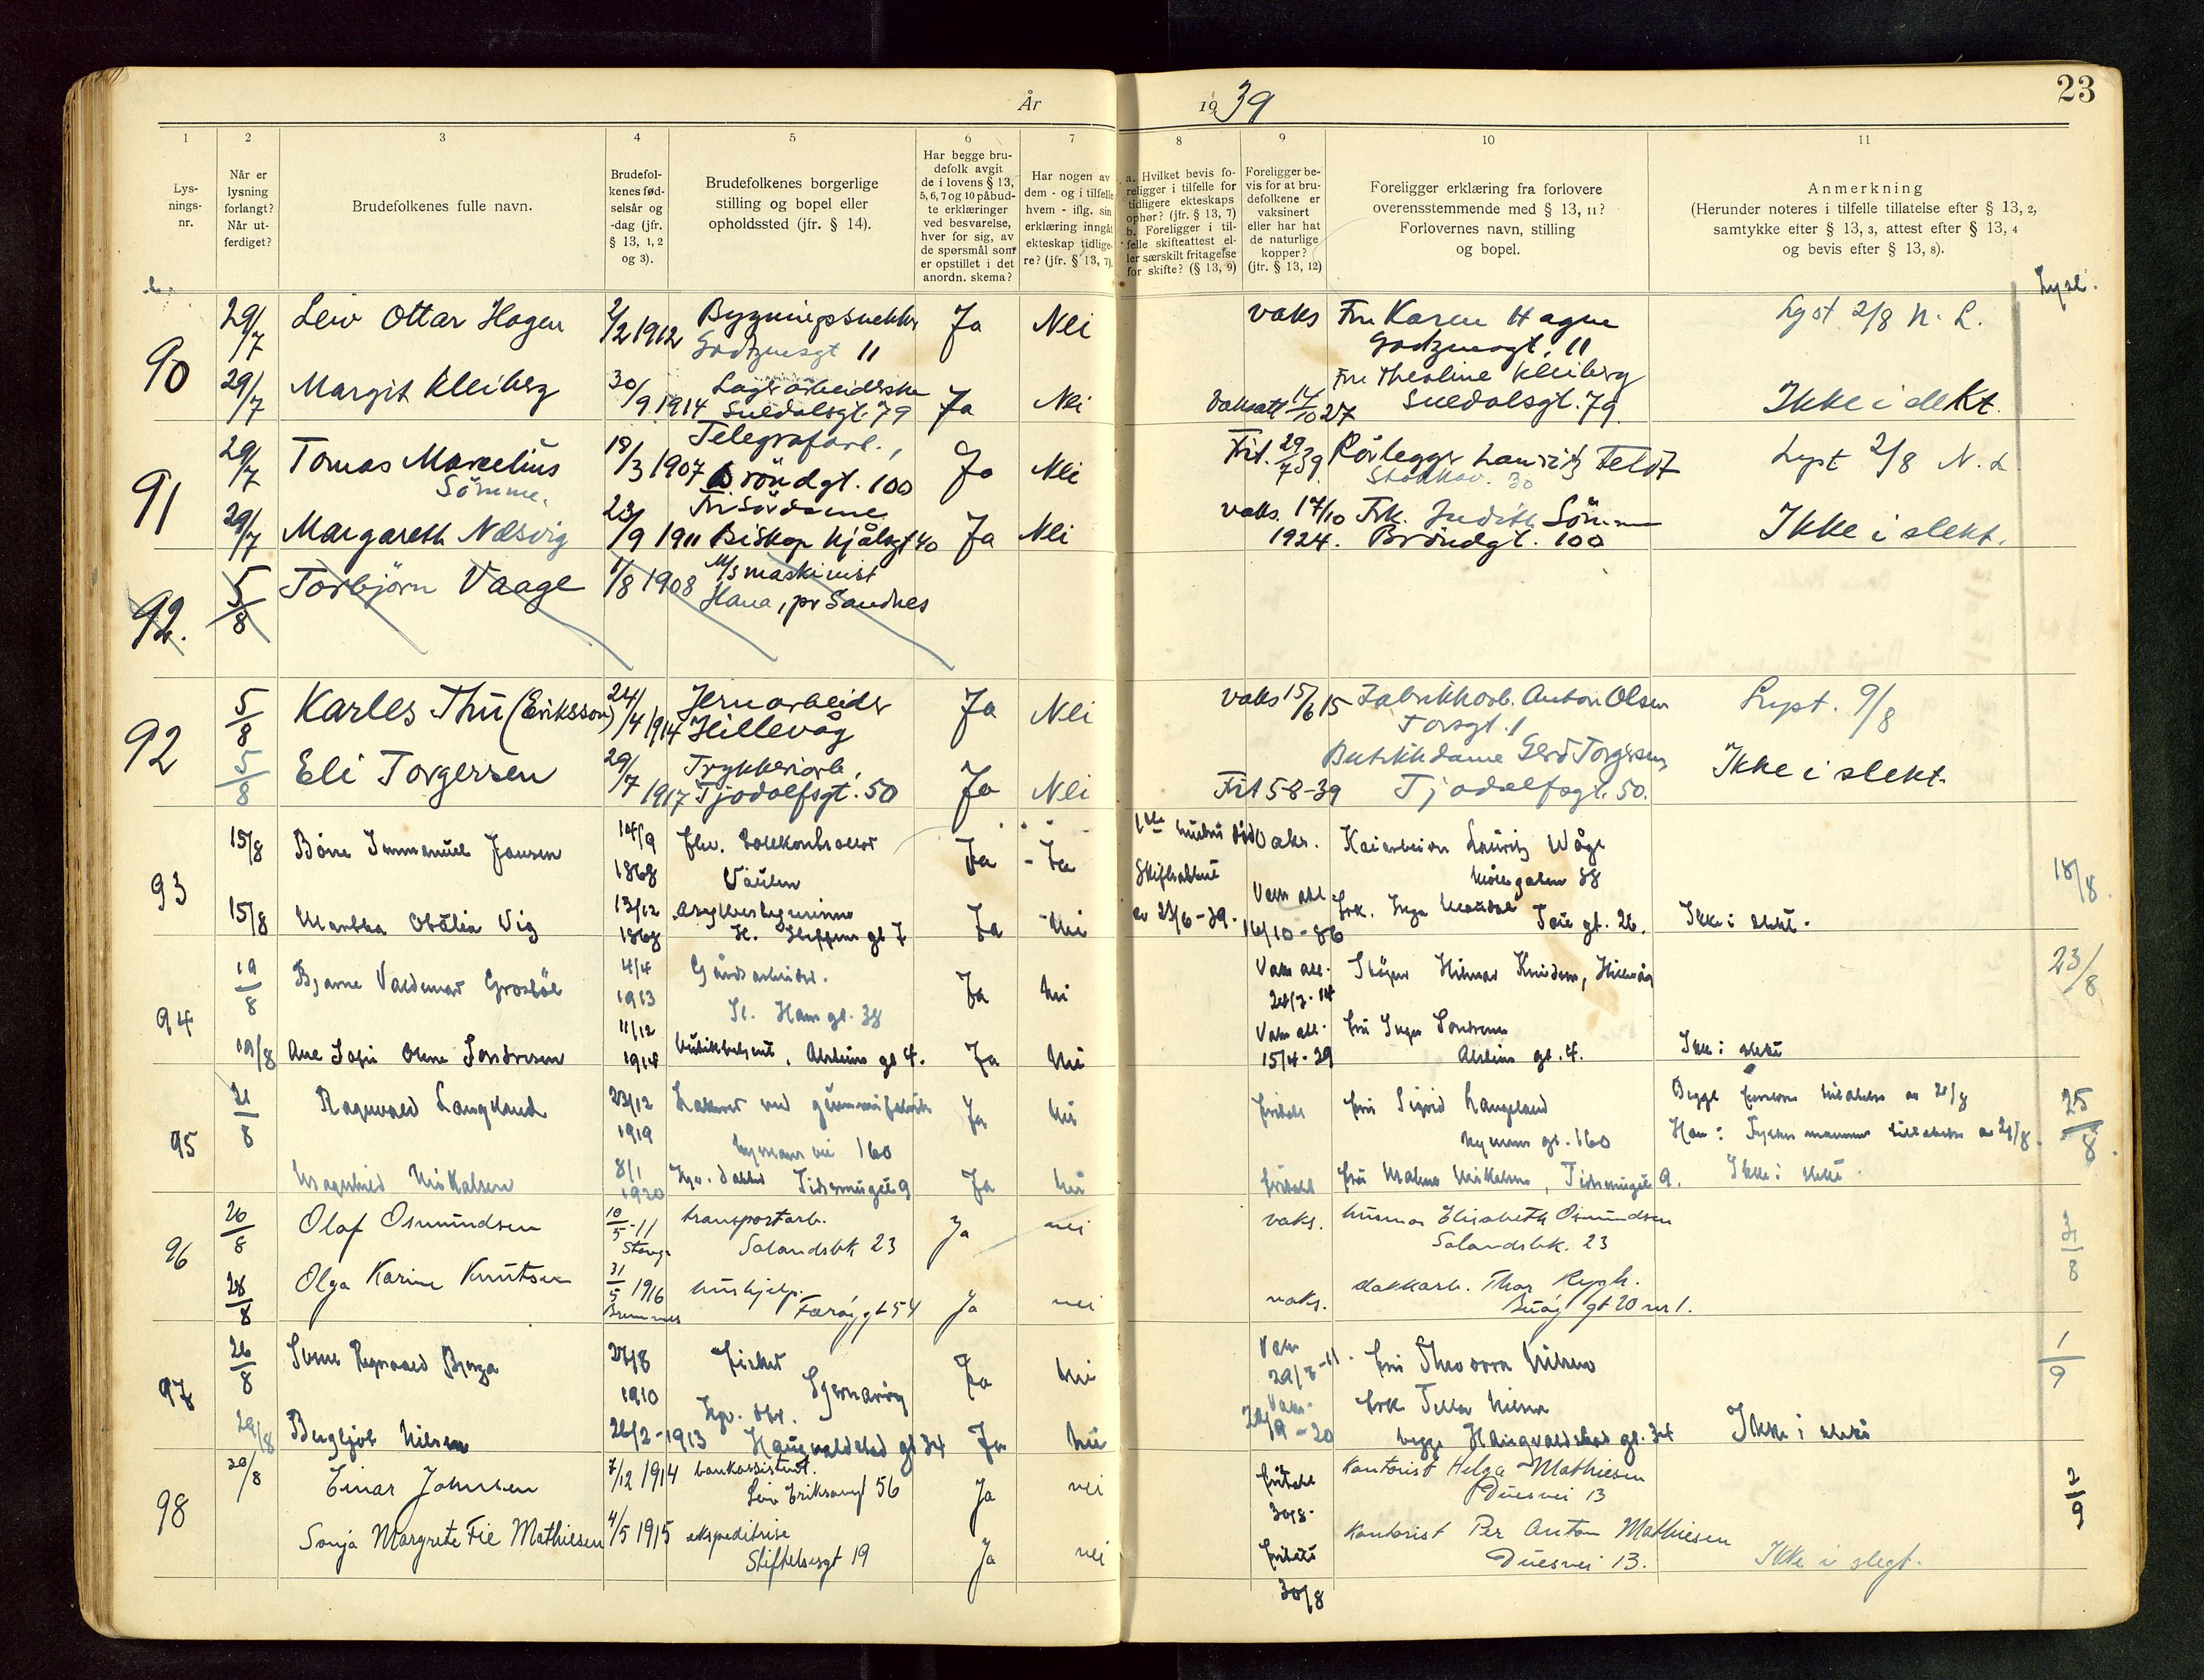 År
19 39
23
1
2
3
4
5
6
7
8
9
10
11
Lys-
nings-
nr.
Når er
lysning
forlangt?
Når ut-
ferdiget?
Brudefolkenes fulle navn.
Brudefol-
kenes fød-
selsår og
-dag (jfr.
§ 13, 1, 2
og 3).
Brudefolkenes borgerlige
stilling og bopel eller
opholdssted (jfr. § 14).
Har begge bru-
defolk avgit
de i lovens § 13,
5, 6, 7 og 10 påbud-
te erklæringer
ved besvarelse,
hver for sig, av
de spørsmål som
er opstillet i det
anordn. skema?
Har nogen av
dem - og i tilfelle
hvem - iflg. sin
erklæring inngåt
ekteskap tidlige-
re? (jfr. § 13, 7).
a. Hvilket bevis fo-
religger i tilfelle for
tidligere ekteskaps
ophør? (jfr. § 13, 7)
b. Foreligger i til-
felle skifteattest el-
ler særskilt fritagelse
for skifte? (§ 13, 9)
Foreligger be-
vis for at bru-
defolkene er
vaksinert
eller har hat
de naturlige
kopper?
(jfr. § 13, 12)
Foreligger erklæring fra forlovere
overensstemmende med § 13, 11?
Forlovernes navn, stilling
og bopel.
Anmerkning
(Herunder noteres i tilfelle tillatelse efter § 13, 2,
samtykke efter § 13, 3, attest efter § 13, 4
og bevis efter § 13, 8).
Lysl.
90
29/7 Leiv Ottar Hagen 2/2 1912 Bygningssnekker Ja Nei vaks Fru Karen Hagen Lyst 2/8 N. L.
Godzensgt 11 Godzensgt. 11
29/7 Margit Kleiberg 30/9 1914 Lagerarbeiderske Ja Nei Fru Theoline Kleiberg
Suldalsgt. 79 Vaksatt 14/10 27 Suldalsgt. 79. Ikke i slekt.
91
29/7 Tomas Marcelius 18/3 1907 Telegrafarb., Ja Nei Frit. 29/7 39 Rørlegger Lauritz Feldt Lyst 2/8 N. L
Sömme. Bröndgt. 100 Stokkav. 30
29/7 Margareth Næsvig 23/9 1911 Frisördame Ja Nei vaks. 17/10 Frk. Judith Sömme Ikke i slekt.
Biskop Njålsgt 40 1924. Bröndgt. 100
92. 5/8 Torbjörn Vaage 1/8 1908 M/S maskinist
Hana, pr Sandnes
92
5/8 Karles Thu (Eriksson) 24/4 1914 Jernarbeider Ja Nei vaks 15/6 15 Fabrikkarb. Anton Olsen Lyst. 9/8
Hillevåg Torsgt. 1
5/8 Eli Torgersen 29/7 1917 Trykkeriarb. Ja Nei Butikkdame Gerd Torgersen Ikke i slekt.
Tjodolfsgt. 50 Frit 5-8-39 Tjodolfsgt. 50.
93
15/8 Börre Immanuel Jansen 14/9 1868 Ja - Ja Vaks. Lauritz Våge 18/8.
Skifteattest
av 23/6-39.
15/8 Martha Otälia Vig 13/12 1868 Ja Nei Vaks att 16/10-86 Frk. Inga Ikke i slekt.
94
19/8 Bjarne Valdemar Grosböl 4/4 1913 Gårdsarbeider. Ja Nei Vaks att. Hilmar Knudsen, Hillevåg 23/8
St. Hans gt. 38
19/8 Ane Sofie Olene Sondresen 11/12 1914 gt 4. Ja Nei Vaks att. 15/4-29 Fru Inga Sondresen Ikke i slekt
gt. 4.
95
21/8 Ragnvald Langeland 23/12 1919 Ja Nei fritatt Fru Sigrid Langeland 25/8.
Nymans vei 160 Nymans gt. 160
Magnhild Mikalsen 8/1 1920 9 Ja Nei fritatt Fru Malene Mikalsen, 9. Ikke i slekt.
96
26/8 Olaf Osmundsen 10/5-11 transportarb. Ja nei vaks. husmor Elisabeth Osmundsen
Solandsbk 23 Solandsbk. 23
28/8 Olga Karine Knutsen 31/5 1916 hushjelp. Ja nei vaks. dekkarb. Thor Rygh.
Færöygt 54 Buöy gt 20 nr 1.
97
26/8 Sverre Ragnvald Berge 27/8 1910 Fisker Ja Nei Vaks Fru Theodora Nilsen 1/9
Sjernaröy
29/8 Bergljot Nilsen 26/2-1913 Haugvaldstad gt 34 Ja Nei Vaks. Frk Nilsen
begge Haugvaldstad gt. 34 Ikke i slekt
98
30/8 Einar Johnsen 7/12 1914 bankassistent. Ja nei fritatt 30/8. Kontorist Helga Mathiesen 2/9
Leiv Eriksonsgt 56 Duesvei 13
Sonja Margrete Fie Mathiesen 4/5 1915 ekspeditrise Ja nei fritatt 30/8 Kontorist Per Anton Mathiesen
Stiftelsesgt 19 Duesvei 13. Ikke i slegt.